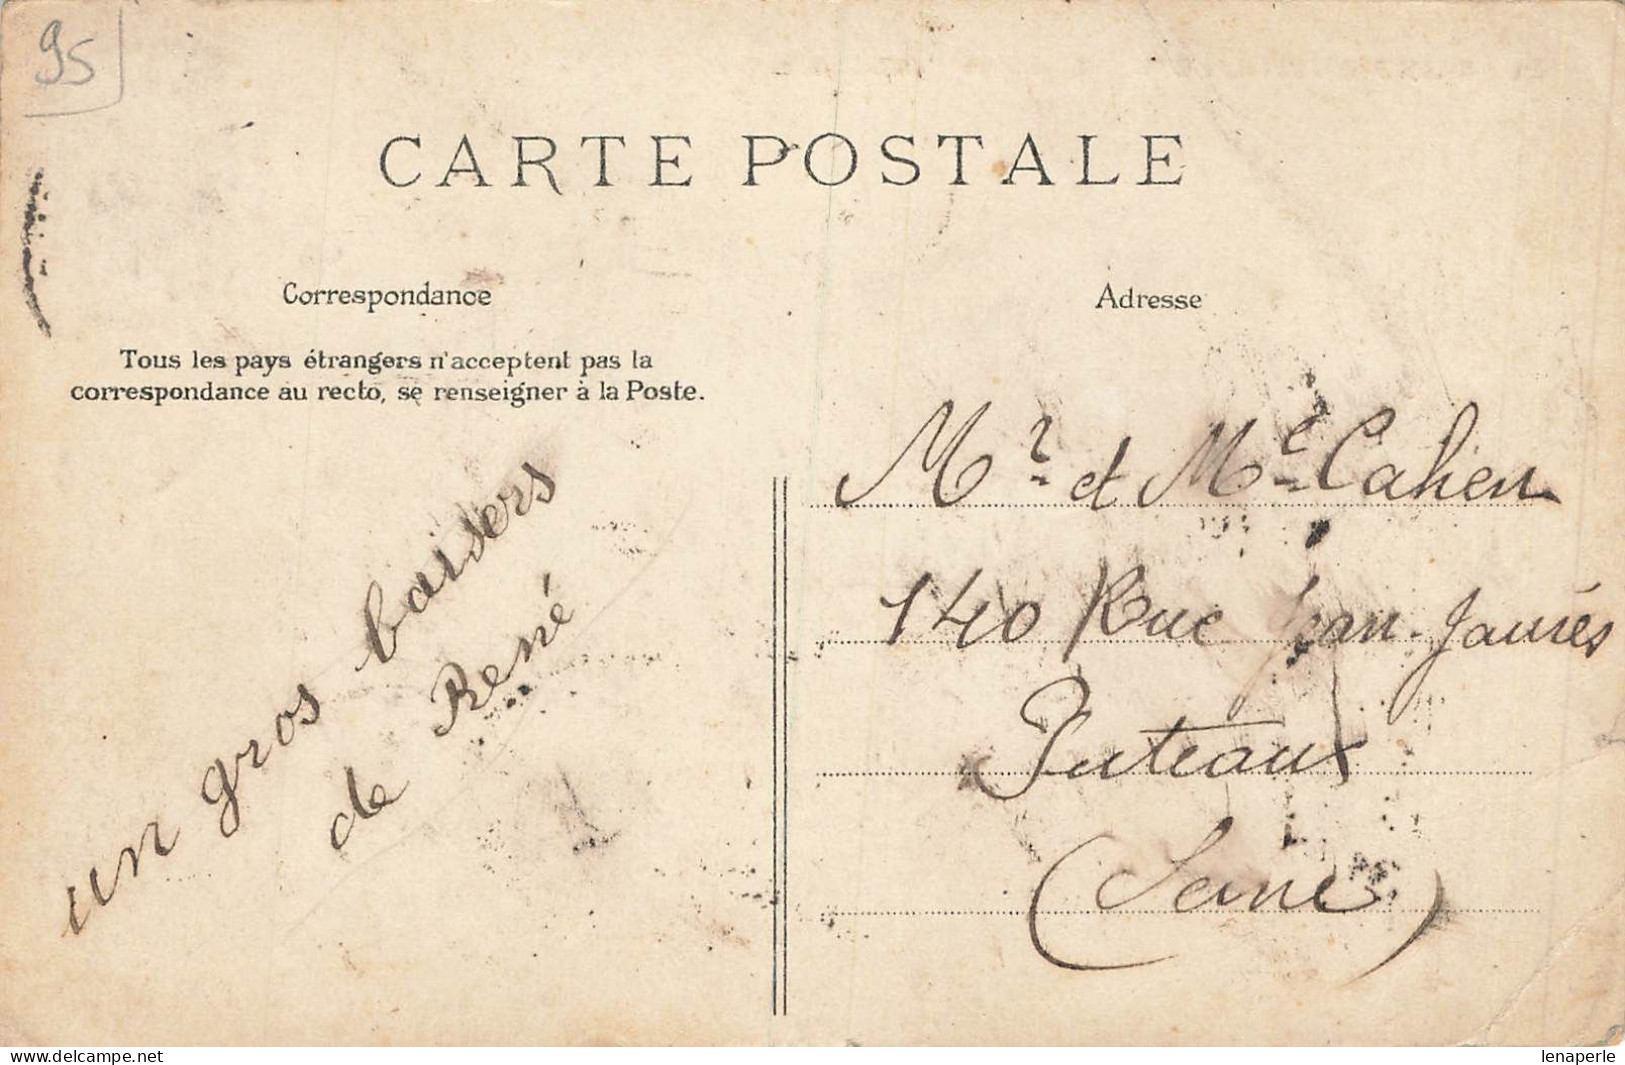 95
CARTE POSTALE
Correspondance
Tous les pays étrangers n'acceptent pas la
correspondance au recto, se renseigner à la Poste.
un gros baisers
de René
Adresse
Mr et Me Cahen
140 Rue Jean Jaurés
Puteaux
(Seine)
www.delcampe.net
lenaperle